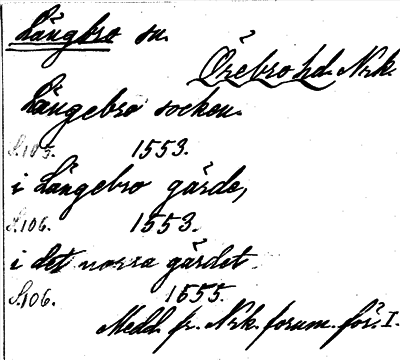 Långbro sn.
Örebro hd. Nrk.
Långebro socken.
S. 105. 1553.
i Långebro gärde,
S. 106. 1553.
i det norra gärdet.
S. 106. 1655.
Medd. fr. Nrk. fornm. för. I.